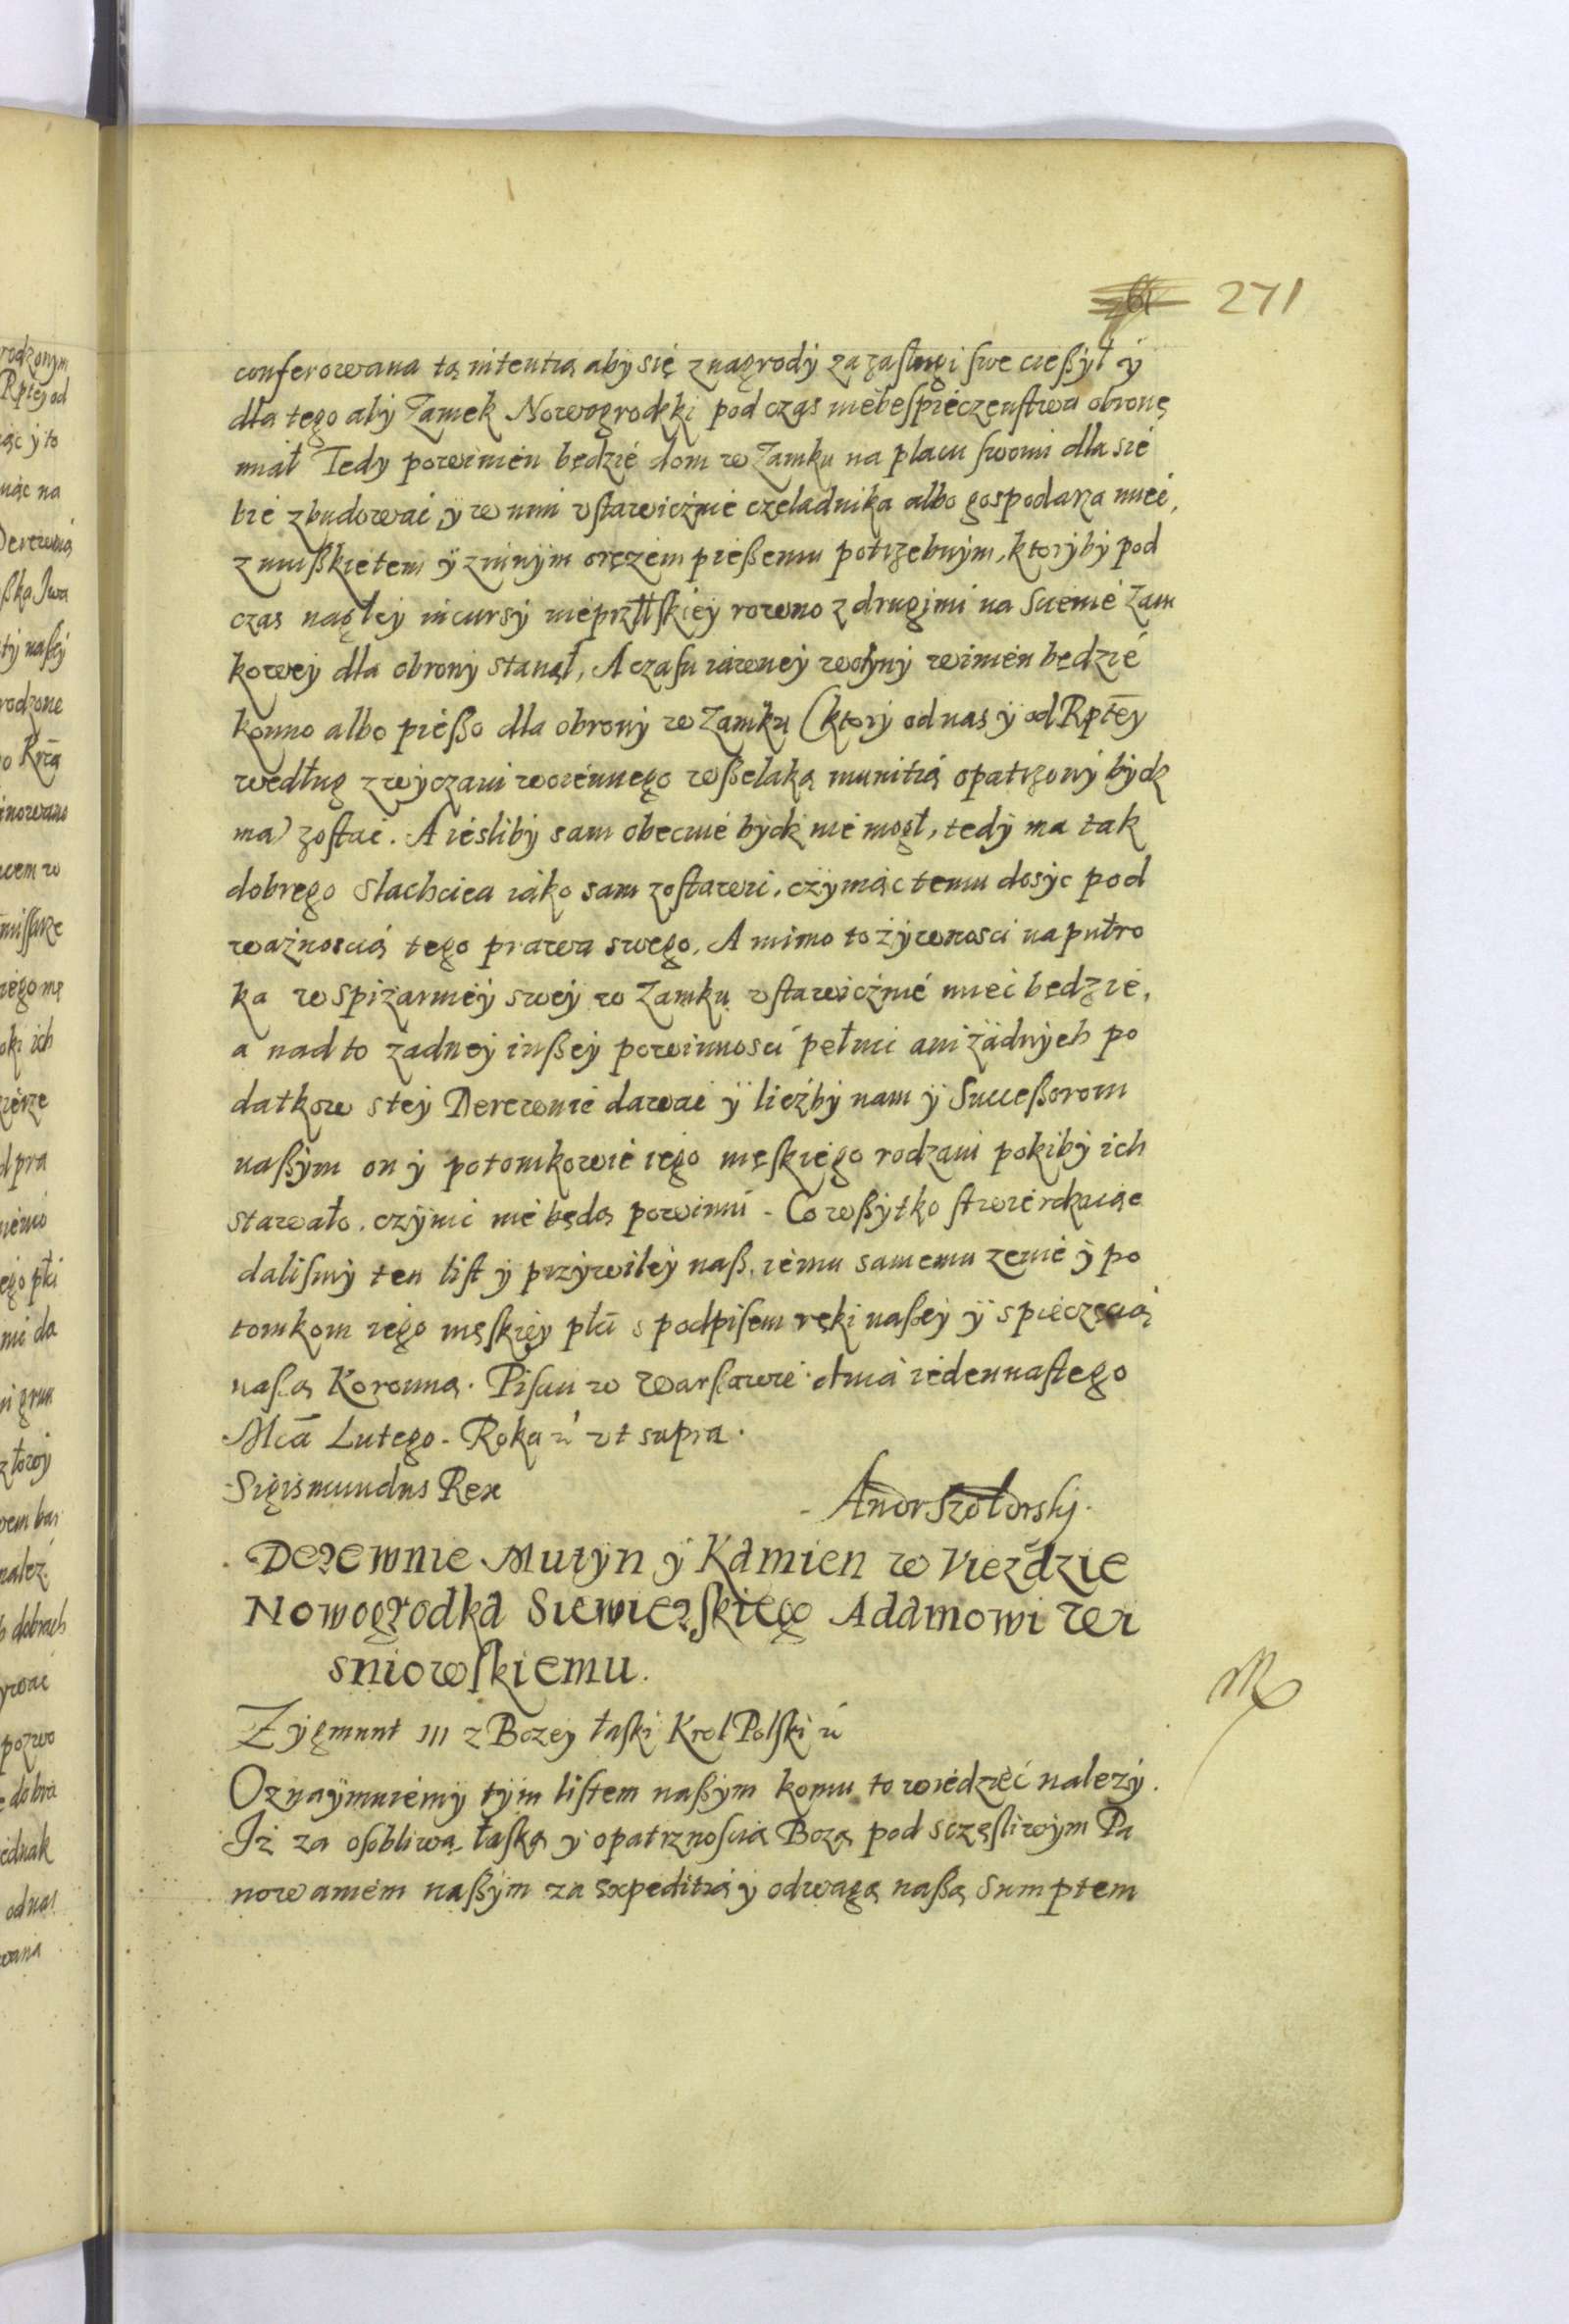 271
conferowana tą intentią aby się z nagrody za zasługi swe cießył ÿ
dla tego aby Zamek Nowogrodzki pod czas niebespieczenstwa obronę
miał Tedy powinien będzie dom w Zamku na placu swoim dla sie
bie zbudować, ÿ w nim vstawicznie czeladnika albo gospodarza mieć,
z mußkietem ÿ z innÿm orężem pießemu potrzebnÿm, ktoryby pod
czas nagłey incursÿ nieprzÿłskiey rowno z drugimi na Scienie Zam
kowey dla obrony stanął, A czasu iawney woÿny winien będzie
konno albo pießo dla obrony w Zamku (ktory od nas ÿ od Rptey
według zwÿczaiu woiennego wßelaką munitią opatrzony bydz
ma) zostać. A iesliby sam obecnie bydz nie mogł, tedy ma tak
dobrego slachcica iako sam zostawić, czyniąc temu dosyc pod
ważnoscią tego prawa swego, A mimo to żywnosci na pułro
ka w spiżarniey swey w Zamku vstawicznie mieć będzie,
a nad to żadney inßey powinnosci pełnic ani żadnych po
datkow s tey Derewnie dawać ÿ liczby nam ÿ Succeßorom
naßym on ÿ potomkowie iego męskiego rodzaiu pokiby ich
stawało, czÿnic nie będą powinni - Co wßytko stwierdzaiąc
dalismy ten list ÿ przywiley naß, iemu samemu żenie ÿ po
tomkom iego męskiey płci s podpisem ręki naßey ÿ s pieczęcią
naßą Koronną. Pisan w Warszawie dnia iedennastego
Mca Lutego - Roku ut supra.
Sigismundus Rex
Derewnie Mutyn ÿ Kamien w Vieździe
Nowogrodka Siewierskiego Adamowi Wi
sniowskiemu.
Zÿgmunt III z Bożey łaski Krol Polski
Oznaÿmuiemy tÿm listem naßym komu to wiedzieć należy.
Iż za osobliwą łaską ÿ opatrznoscią Bożą pod sczęsliwÿm Pa
nowaniem naßym za expeditią ÿ odwagą naßą Sumptem